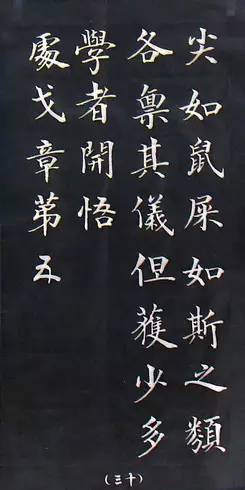 尖如鼠屎如斯之類
各稟其儀但獲少多
學者開悟
處戈章第五
(三十)